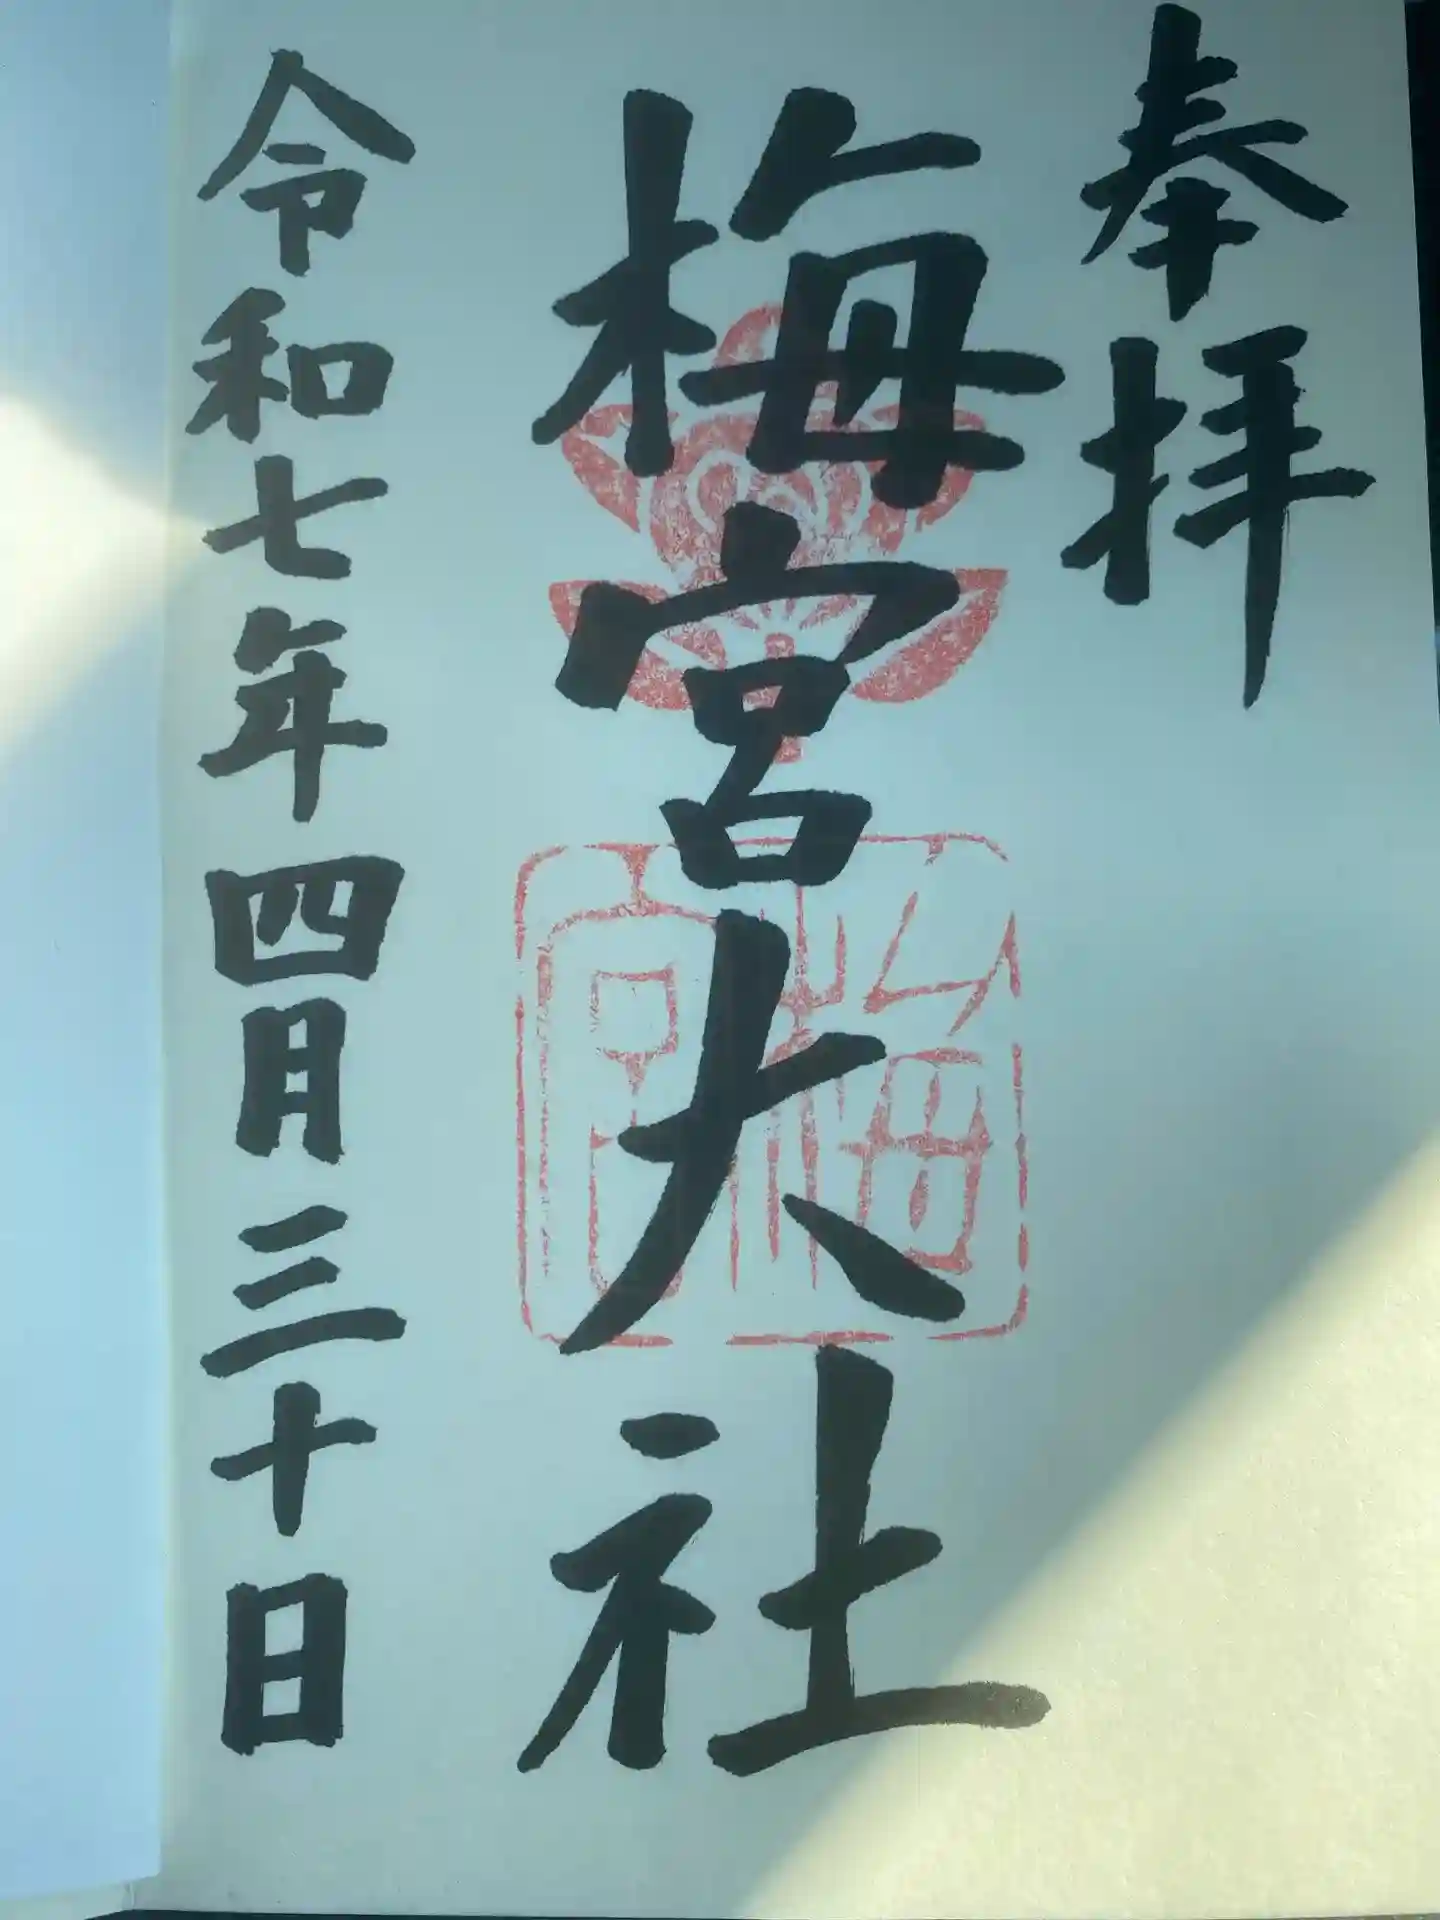 奉拝
梅宮大社
梅宮
令和七年四月三十日